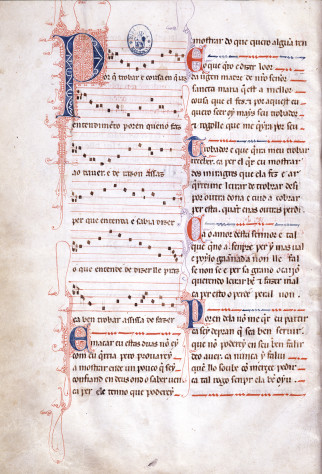 Por q̃ trobar e cousa en q̃ ias
entendimẽto poren queno faz
ao dauer. e de razon assaz
per que entenda e sabia dizer
o que entende de dizer lle praz
ca ben trobar assi ssa de fazer
E macar eu estas duas nõ ey
com eu q̃rria pero prouarey
a mostrar ende un pouco q̃ sey
confiand en deus ond o saber uen
ca per ele tenno que poderey
mostrar do que quero algũa ren
E o que q̃ro e dizer loor
da uirgen madre de nr̃o sennor
santa maria q̃ est a mellor
cousa que el fez. e por aquest eu
quero seer oy mais seu trobador
e rogolle que me q̃ira por seu.
Trobador e que q̃ira meu trobar
receber. ca per el q̃r eu mostrar
dos miragres que ela fez. e ar
q̃rreime leixar de trobar desi
por outra dona. e cuid a cobrar
per esta. quant enas outras perdi.
Ca o amor desta sennor e tal
que q̃no a sempre per y mais ual
e poylo gaannada non lle fal
se non se e per sa grand ocajõ
querendo leixar bẽ e fazer mal
ca per esto o perde e per al non.
Poren dela nõ me q̃r eu partir
ca sey de pran q̃ sea ben seruir.
que nõ poderey en seu ben falir
deo auer. ca nunca y faliu
que llo soube cõ merçee pedir
ca tal rogo sempr ela bẽ oyu.